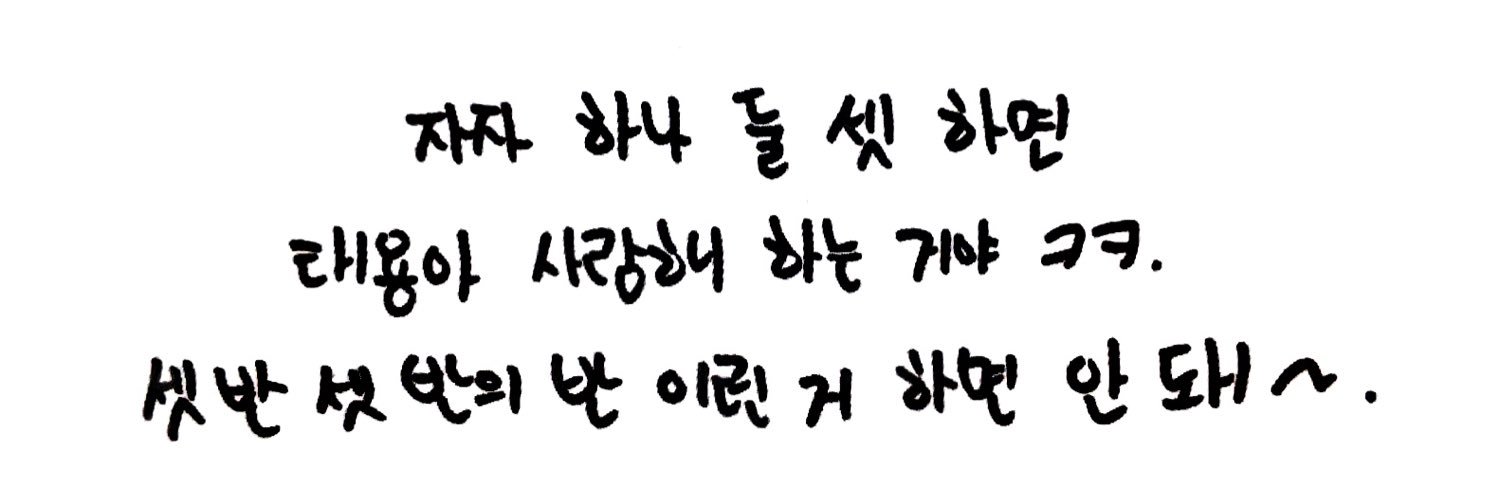 자자 하나 둘 셋 하면
태용아 사랑해 하는 거야 ㅋㅋ.
셋 반 셋 반의 반 이런 거 하면 안 돼~.